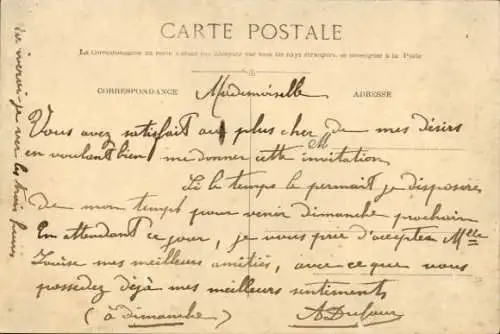 CARTE POSTALE
La Correspondance au recto n'étant pas acceptée par tous les pays étrangers, se renseigner à la Poste
CORRESPONDANCE
ADRESSE
Mademoiselle
Vous avez satisfait au plus cher de mes désirs
en voulant bien me donner cette invitation
Si le temps le permait je disposerai
de mon temps pour venir dimanche prochain
En attendant ce jour, je vous prie d'accepter Melle
Louise mes meilleurs amitiés, avec ce que vous
possedez déjà mes meilleurs sentiments
(à dimanche)
A Dufour